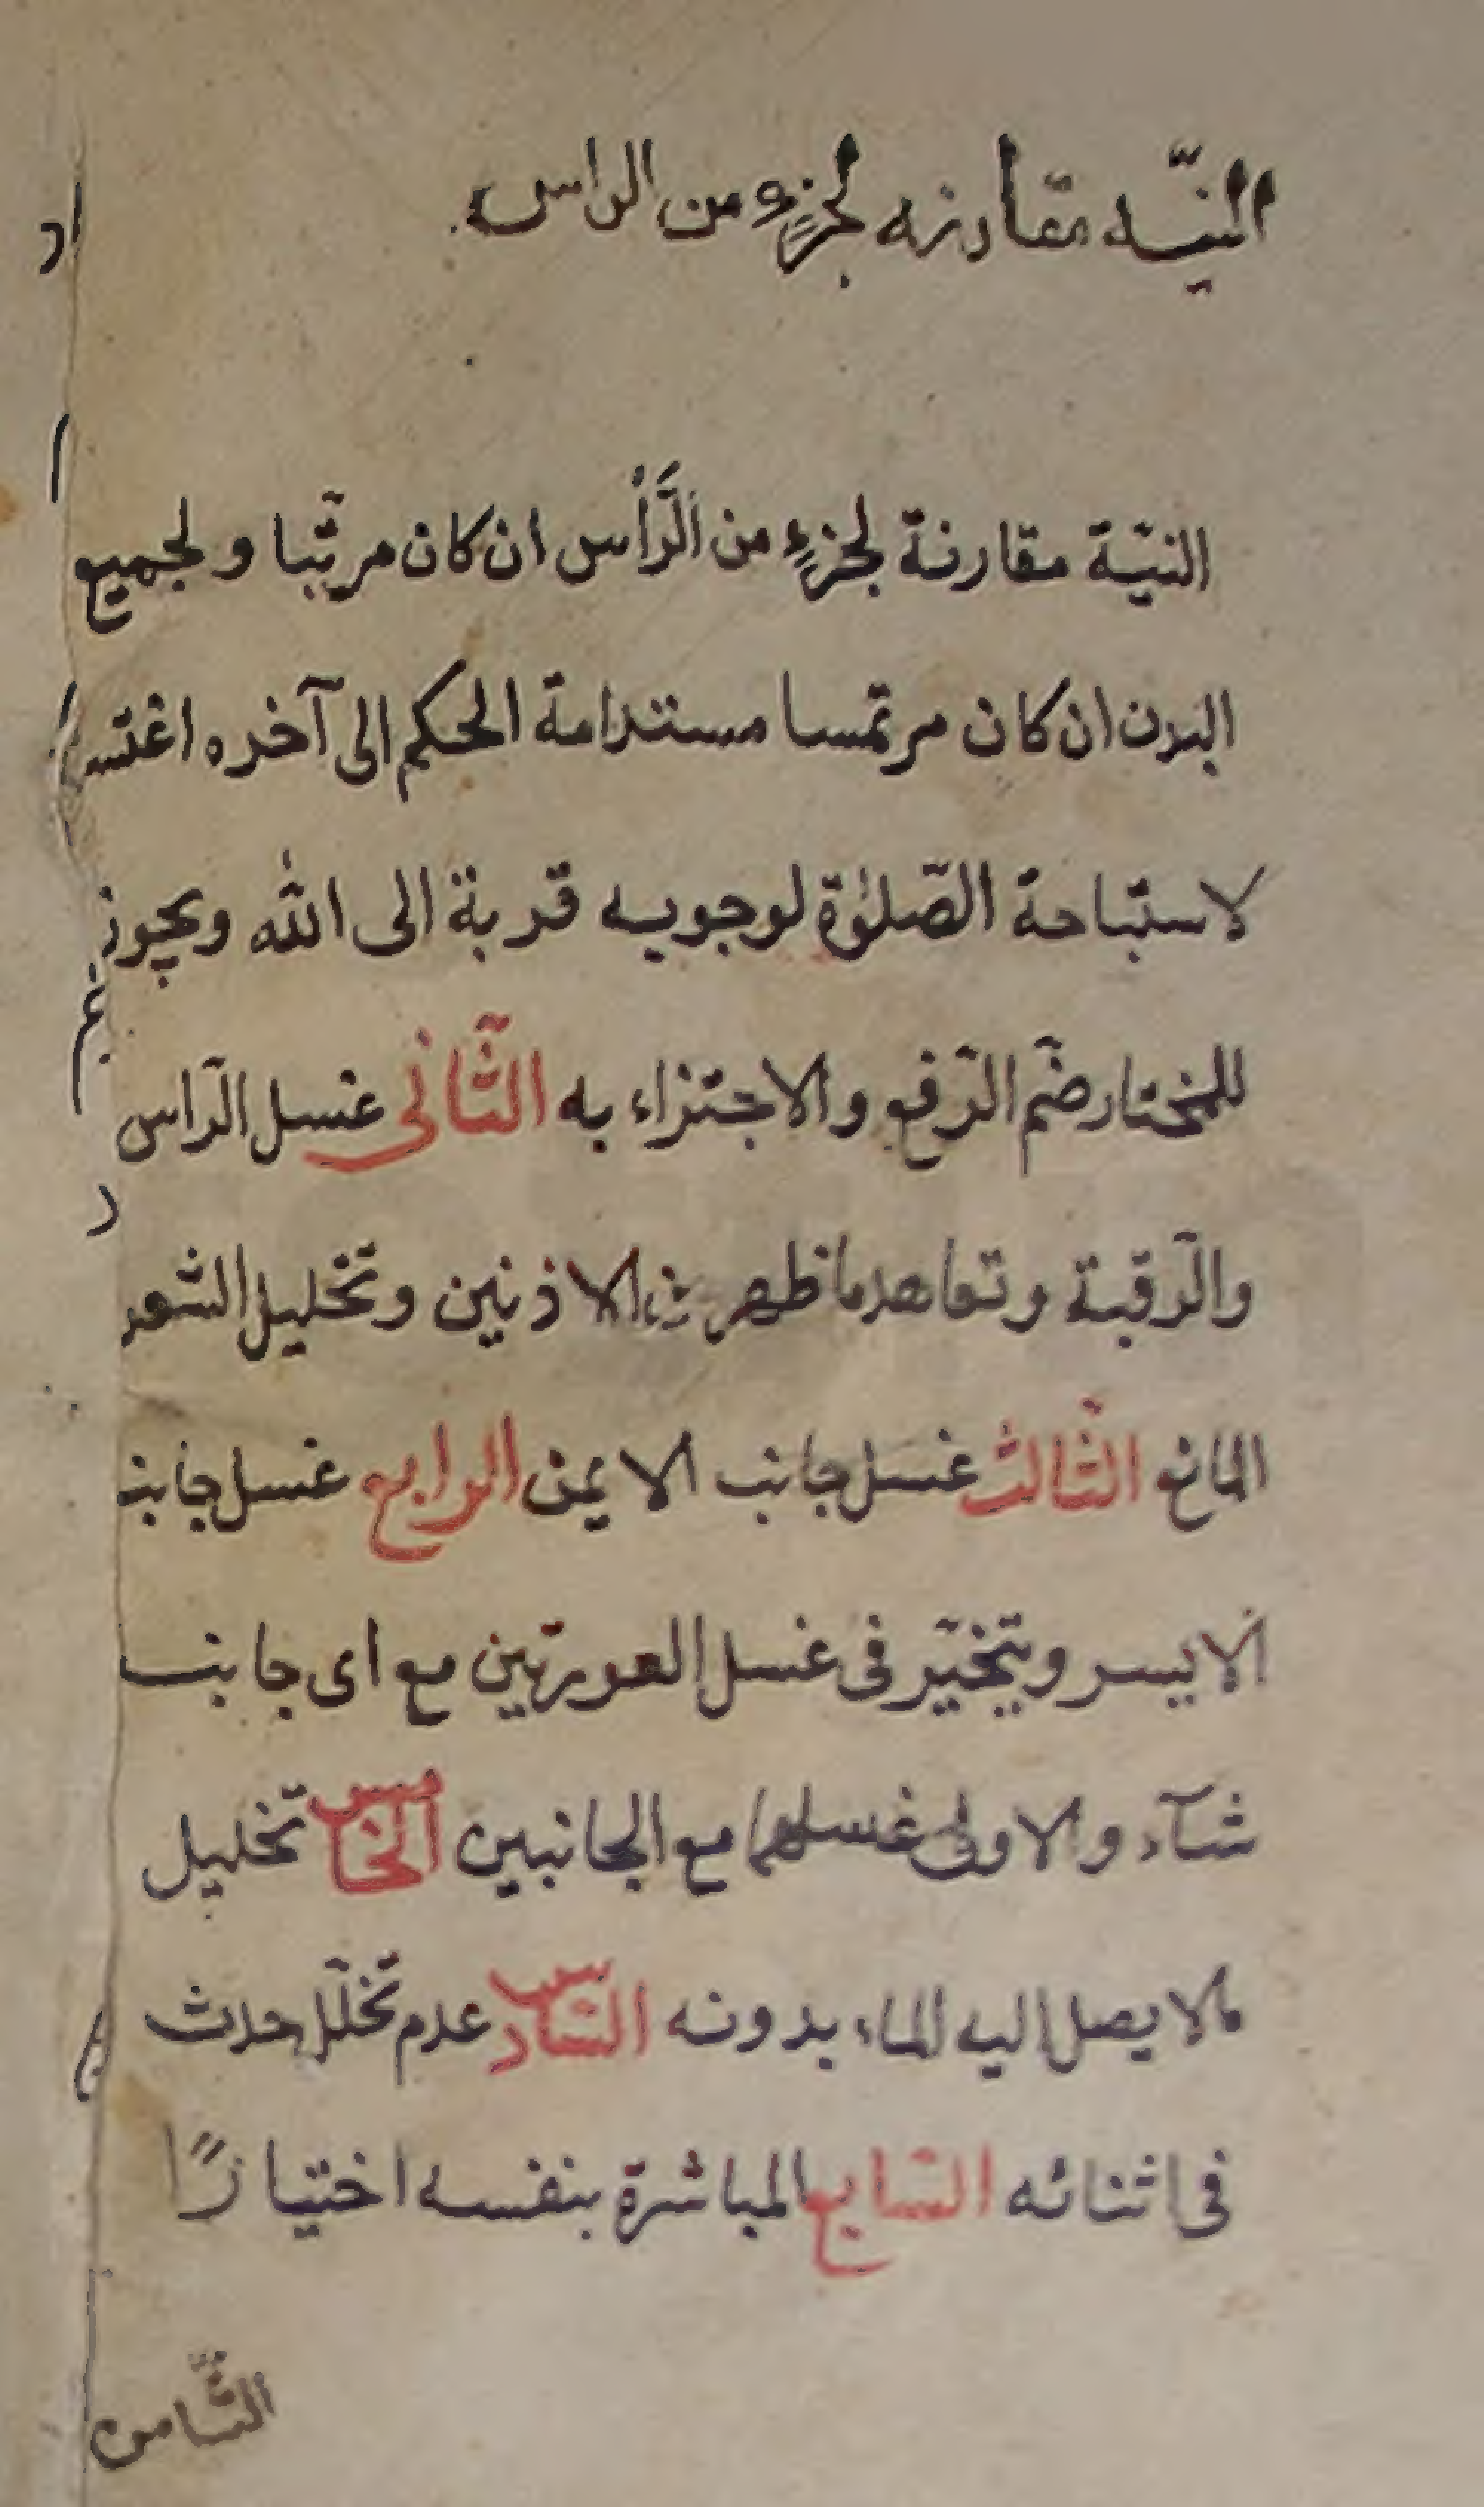 النيّه مقارنه لجزءٍ من الراس
النيّة مقارنة لجزءٍ من الرَّأس ان كان مرتّبا ولجميع
البدن ان كان مرتمسا مستدامة الحكم الى آخره اغتسل
لاستباحة الصّلوٰة لوجوبه قربة الى الله ويجوز
للمختار ضمّ الرّفع والاجتزاء به الثّانى غسل الرّاس
والرّقبة وتعاهد ما ظهر من الاذنين وتخليل الشعر
المانع الثّالث غسل جانب الايمن الرابع غسل جانب
الايسر ويتخيّر فى غسل العورتين مع اى جانب
شآء والاولى غسلهما مع الجانبين الخامس تخليل
مالا يصل اليه الماء بدونه السّادس عدم تخلّل حدث
فى اثنائه السّابع المباشرة بنفسه اختيارًا
الثّامن